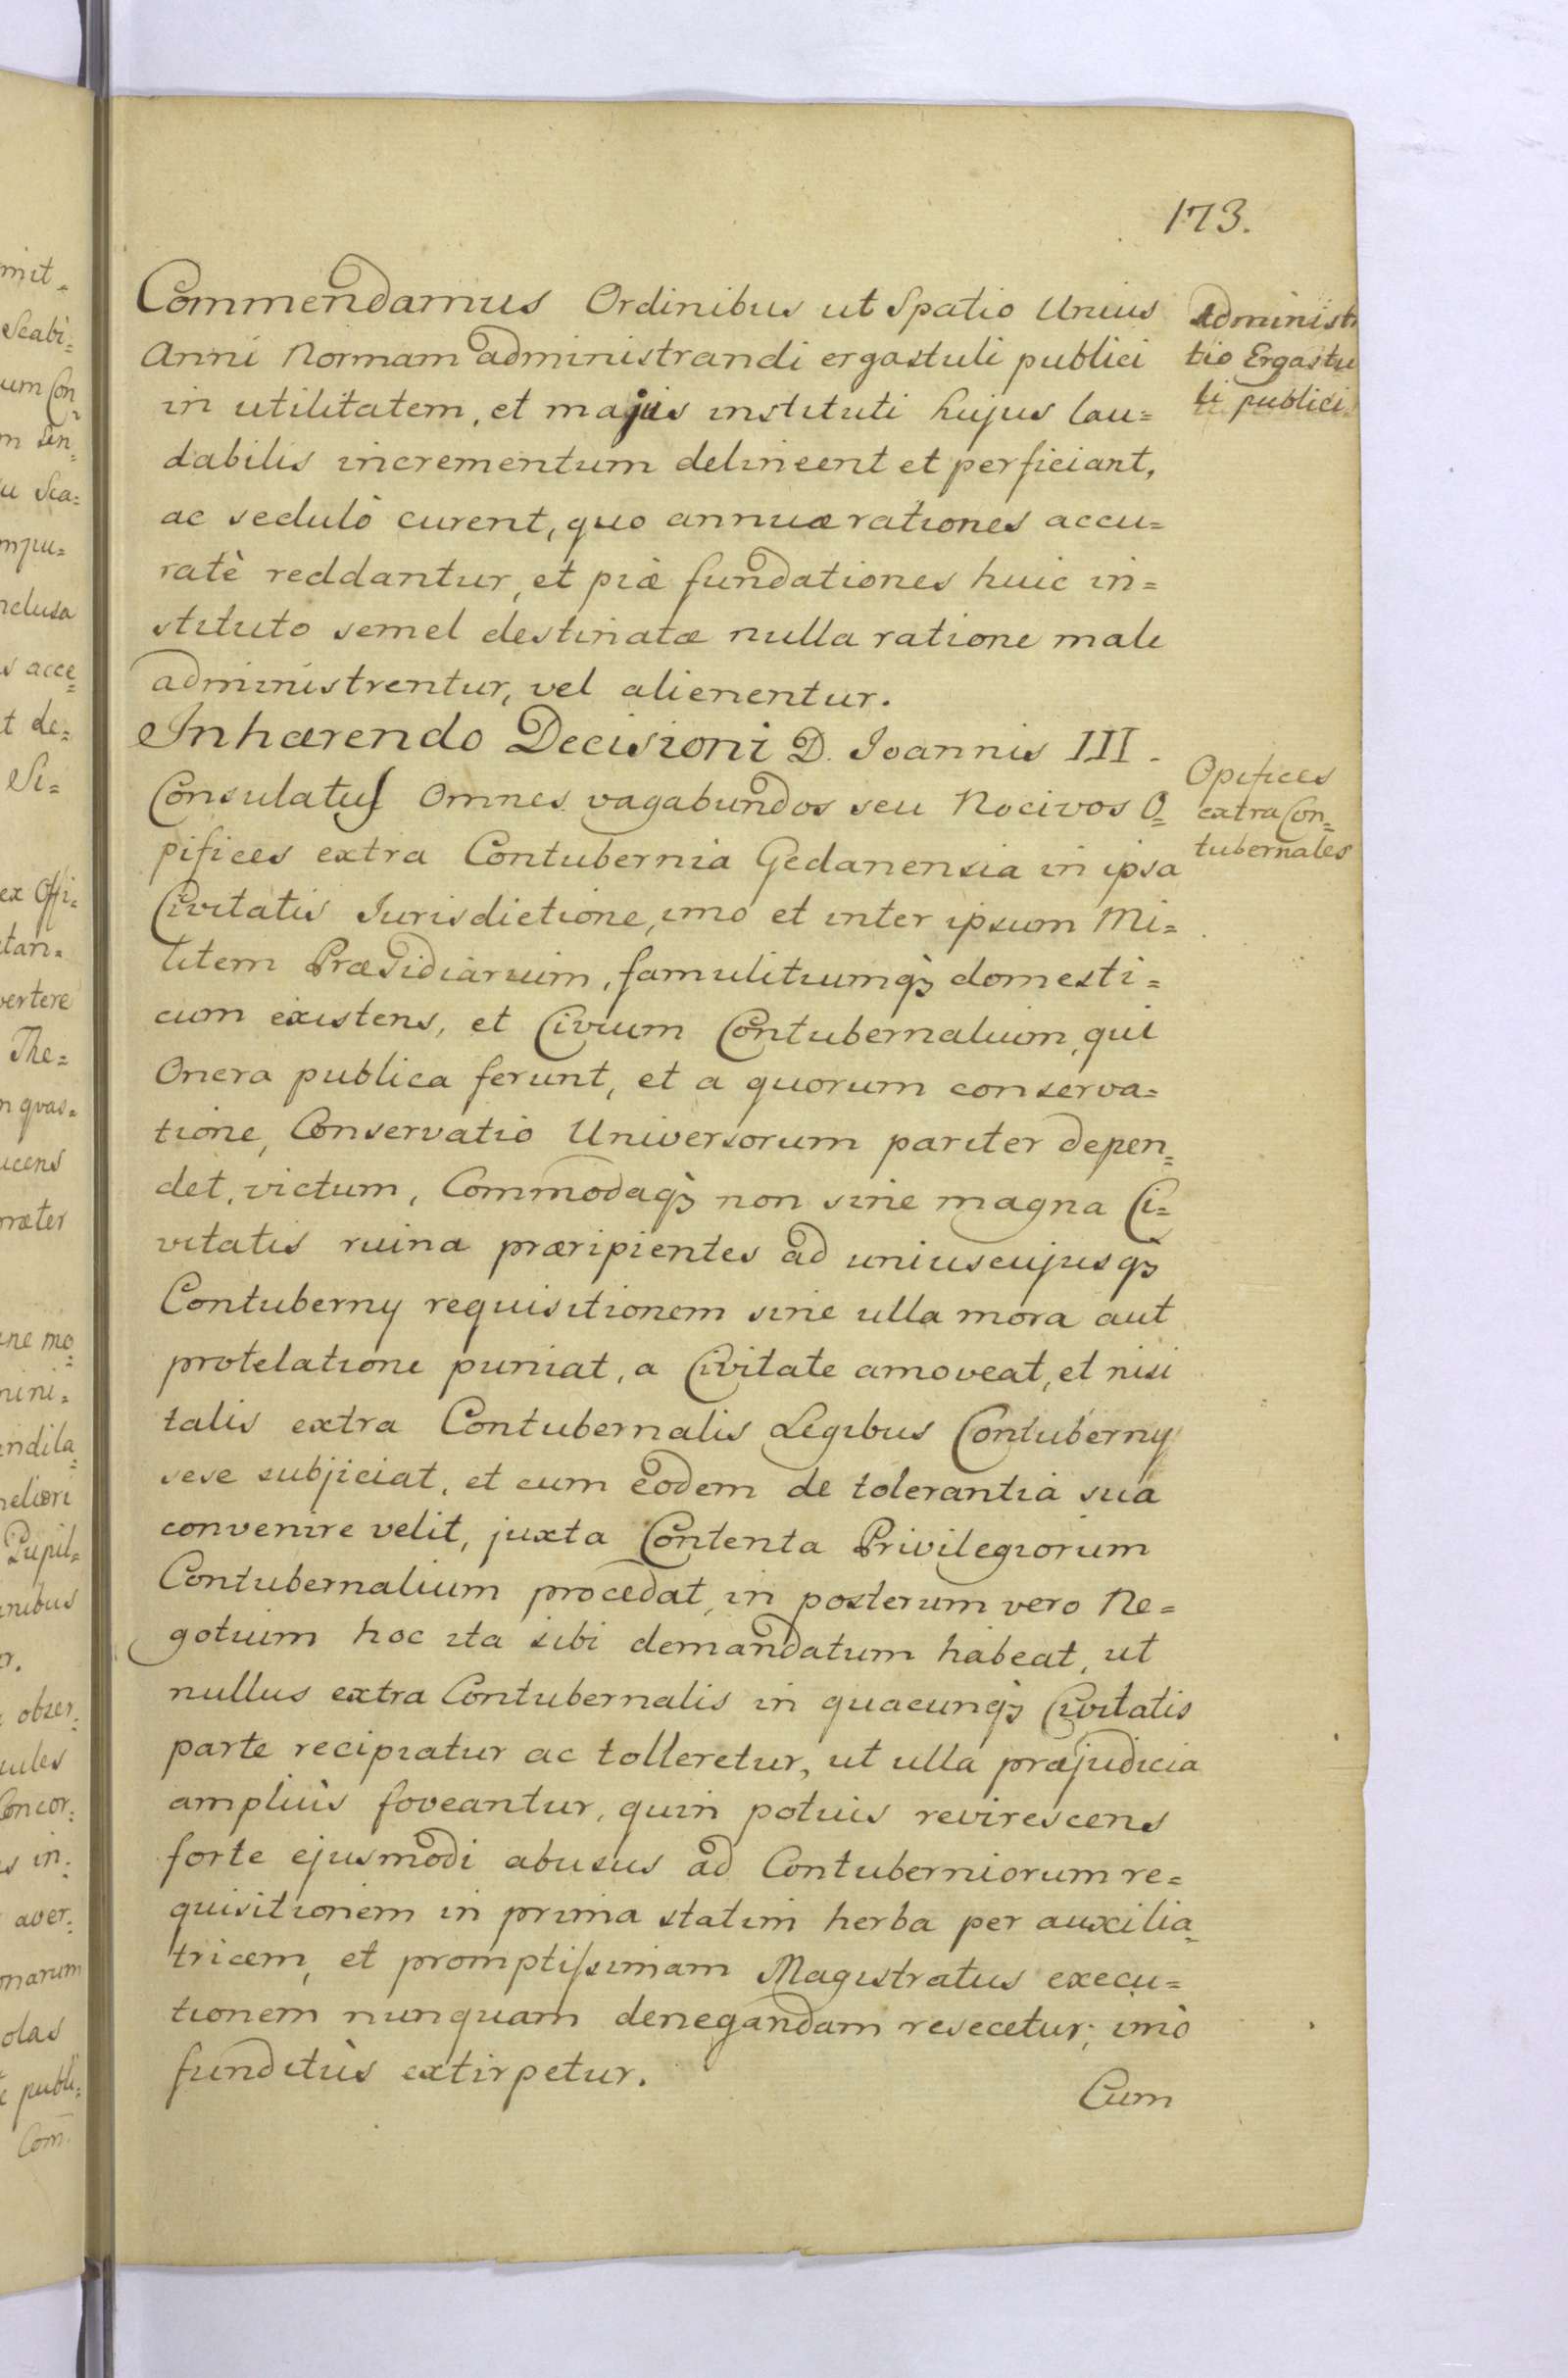 173.
Commendamus Ordinibus ut Spatio Unius
Anni Normam administrandi ergastuli publici
in utilitatem, et majus instituti hujus lau=
dabilis incrementum delineent et perficiant,
ac sedulò curent, quo annuæ rationes accu=
ratè reddantur, et piæ fundationes huic in=
stituto semel destinatæ nulla ratione male
administrentur, vel alienentur.
Administr
tio Ergastu
li publici
Inhærendo Decisioni D. Ioannis III.
Consulatus Omnes vagabundos seu Nocivos O=
pifices extra Contubernia Gedanensia in ipsa
Civitatis Iurisdictione, imo et inter ipsum Mi=
litem Præsidiarium, famulitiumqꝫ domesti=
cum existens, et Civium Contubernalium, qui
Onera publica ferunt, et a quorum conserva=
tione, Conservatio Universorum pariter depen=
det, victum, Commodaqꝫ non sine magna Ci=
vitatis ruina præripientes ad uniuscujusqꝫ
Contuberny requisitionem sine ulla mora aut
protelatione puniat, a Civitate amoveat, et nisi
talis extra Contubernalis Legibus Contuberny
sese subjiciat, et cum eodem de tolerantia sua
convenire velit, juxta Contenta Privilegiorum
Contubernalium procedat, in posterum vero Ne=
gotium hoc ita sibi demandatum habeat, ut
nullus extra Contubernalis in quacunqꝫ Civitatis
parte recipiatur ac tolleretur, ut ulla præjudicia
ampliùs foveantur, quin potius revirescens
forte ejusmodi abusus ad Contuberniorum re=
quisitionem in prima statim herba per auxilia=
tricem, et promptissimam Magistratus execu=
tionem nunquam denegandam resecetur, imò
funditùs extirpetur.
Opifices
extra Con=
tubernales
Cum
mit=
Scabi=
um Con=
u Sca=
nclusa
s acce=
t de=
Si=
ex Offi=
tan=
vertere
The=
n quas=
icens
ne mo=
mini=
endila=
Pupil=
obser=
Concor=
s in=
aver=
onarum
olas
publi=
Com̄